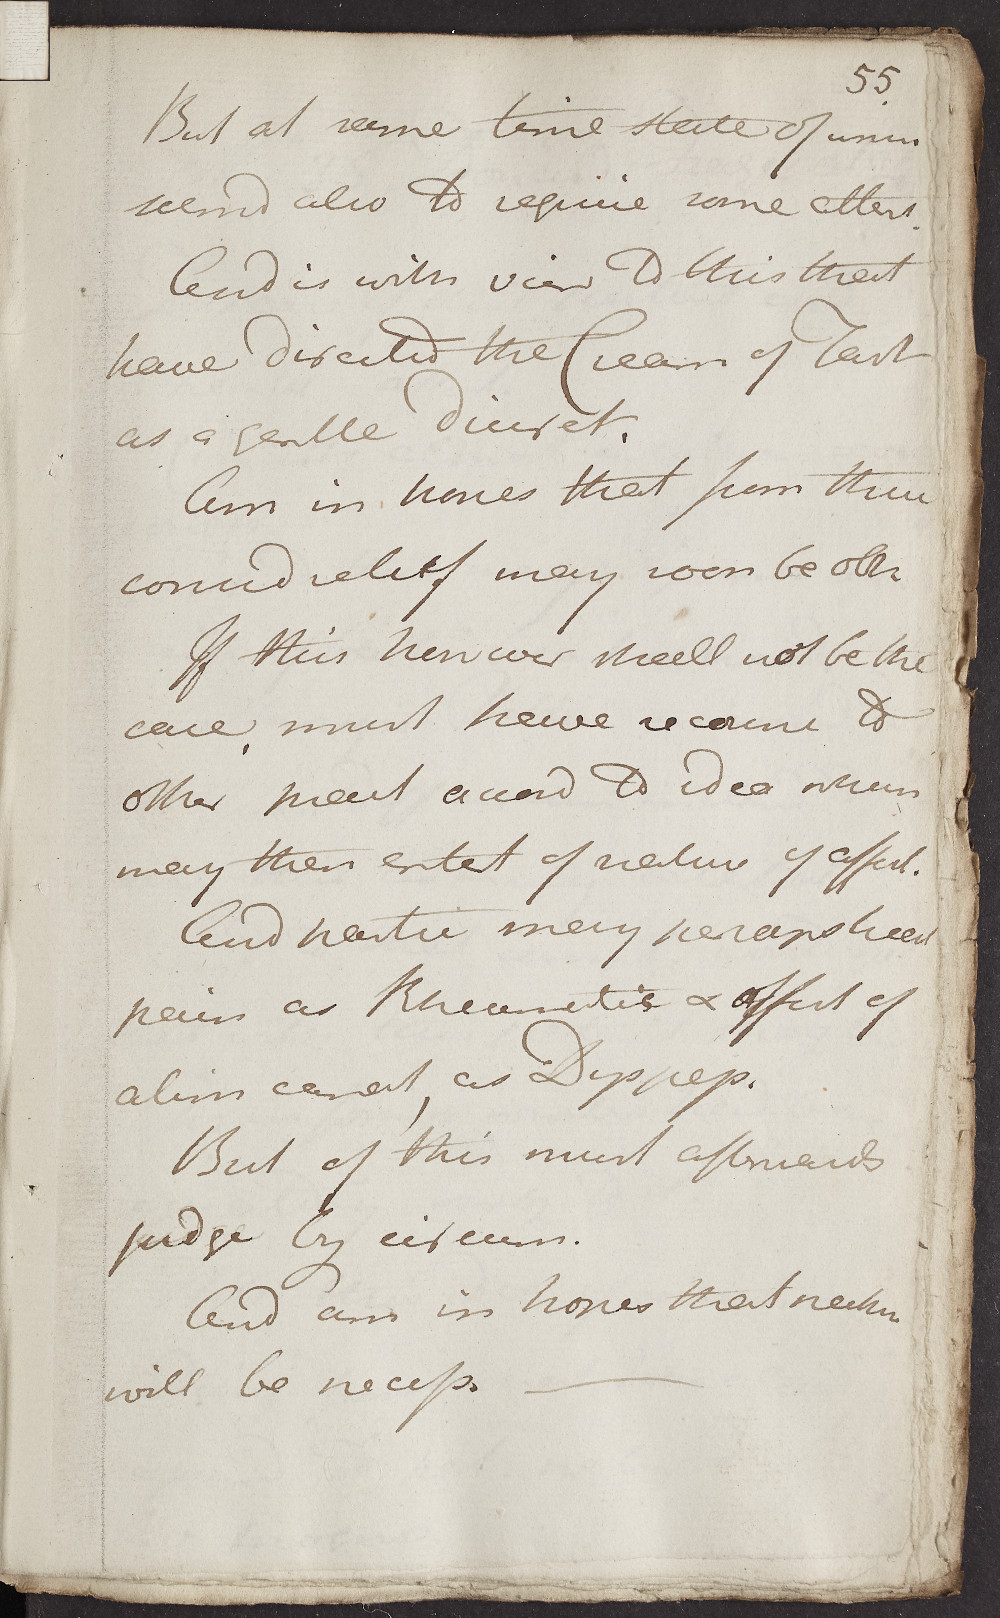 55
But at same time state of urin
seemd also to requiie some atten.
And is with view to this that
have directed the Cream of Tart
as a gentle Diuret.
Am in hopes that from these
consid relief may soon be obtn
If this however shall not be the
case, must have recourse to
other pract accord to idea whm
may then entet of nature of affect.
And partic may perhaps treat
pain as Rheumatis & affect of
alim canal, as Dyspep.
But of this must afterwards
judge by circum.
And am in hopes that neithr
will be necess. —